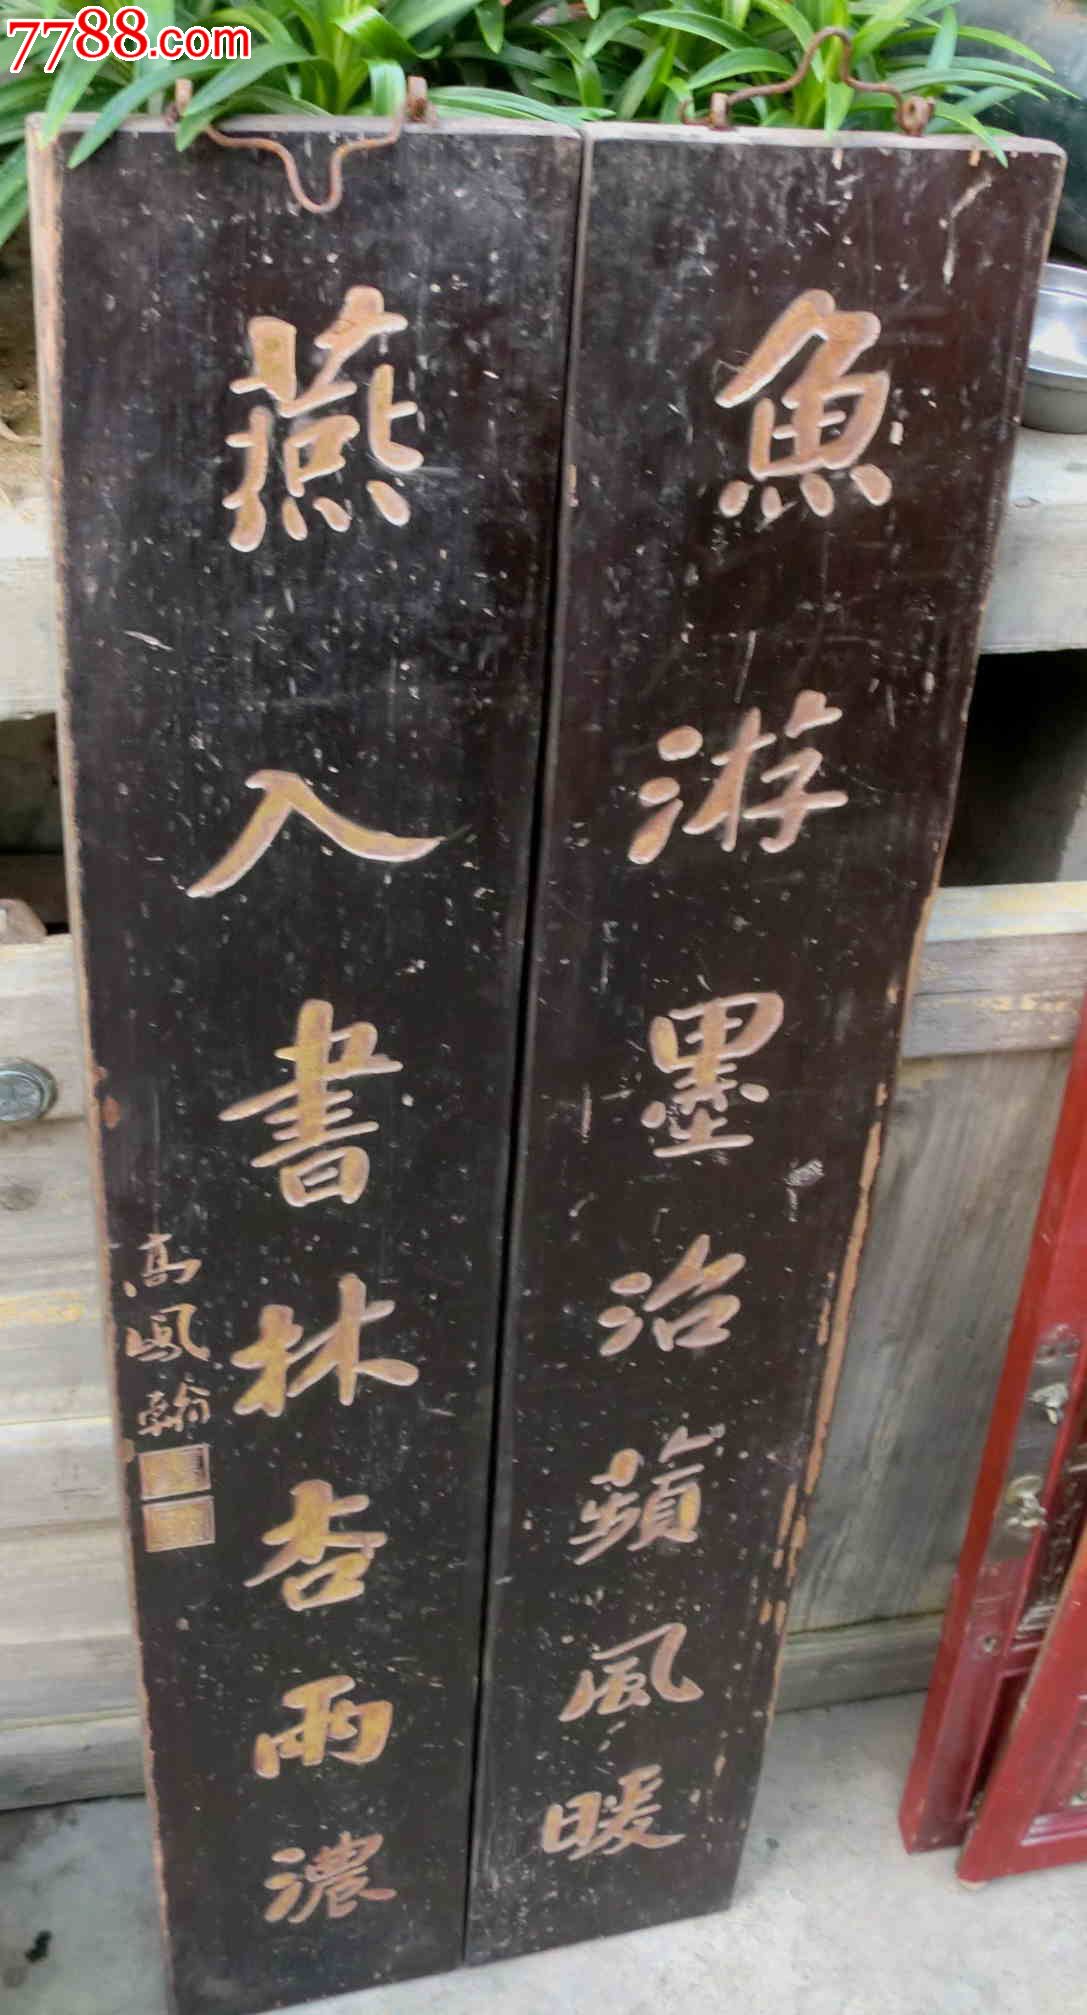 7788.com
魚游墨沼蘋風暖
燕入書林杏雨濃
高鳳翰